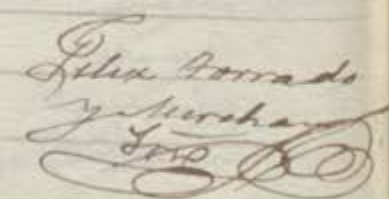 Felix Torrado
y Merchan